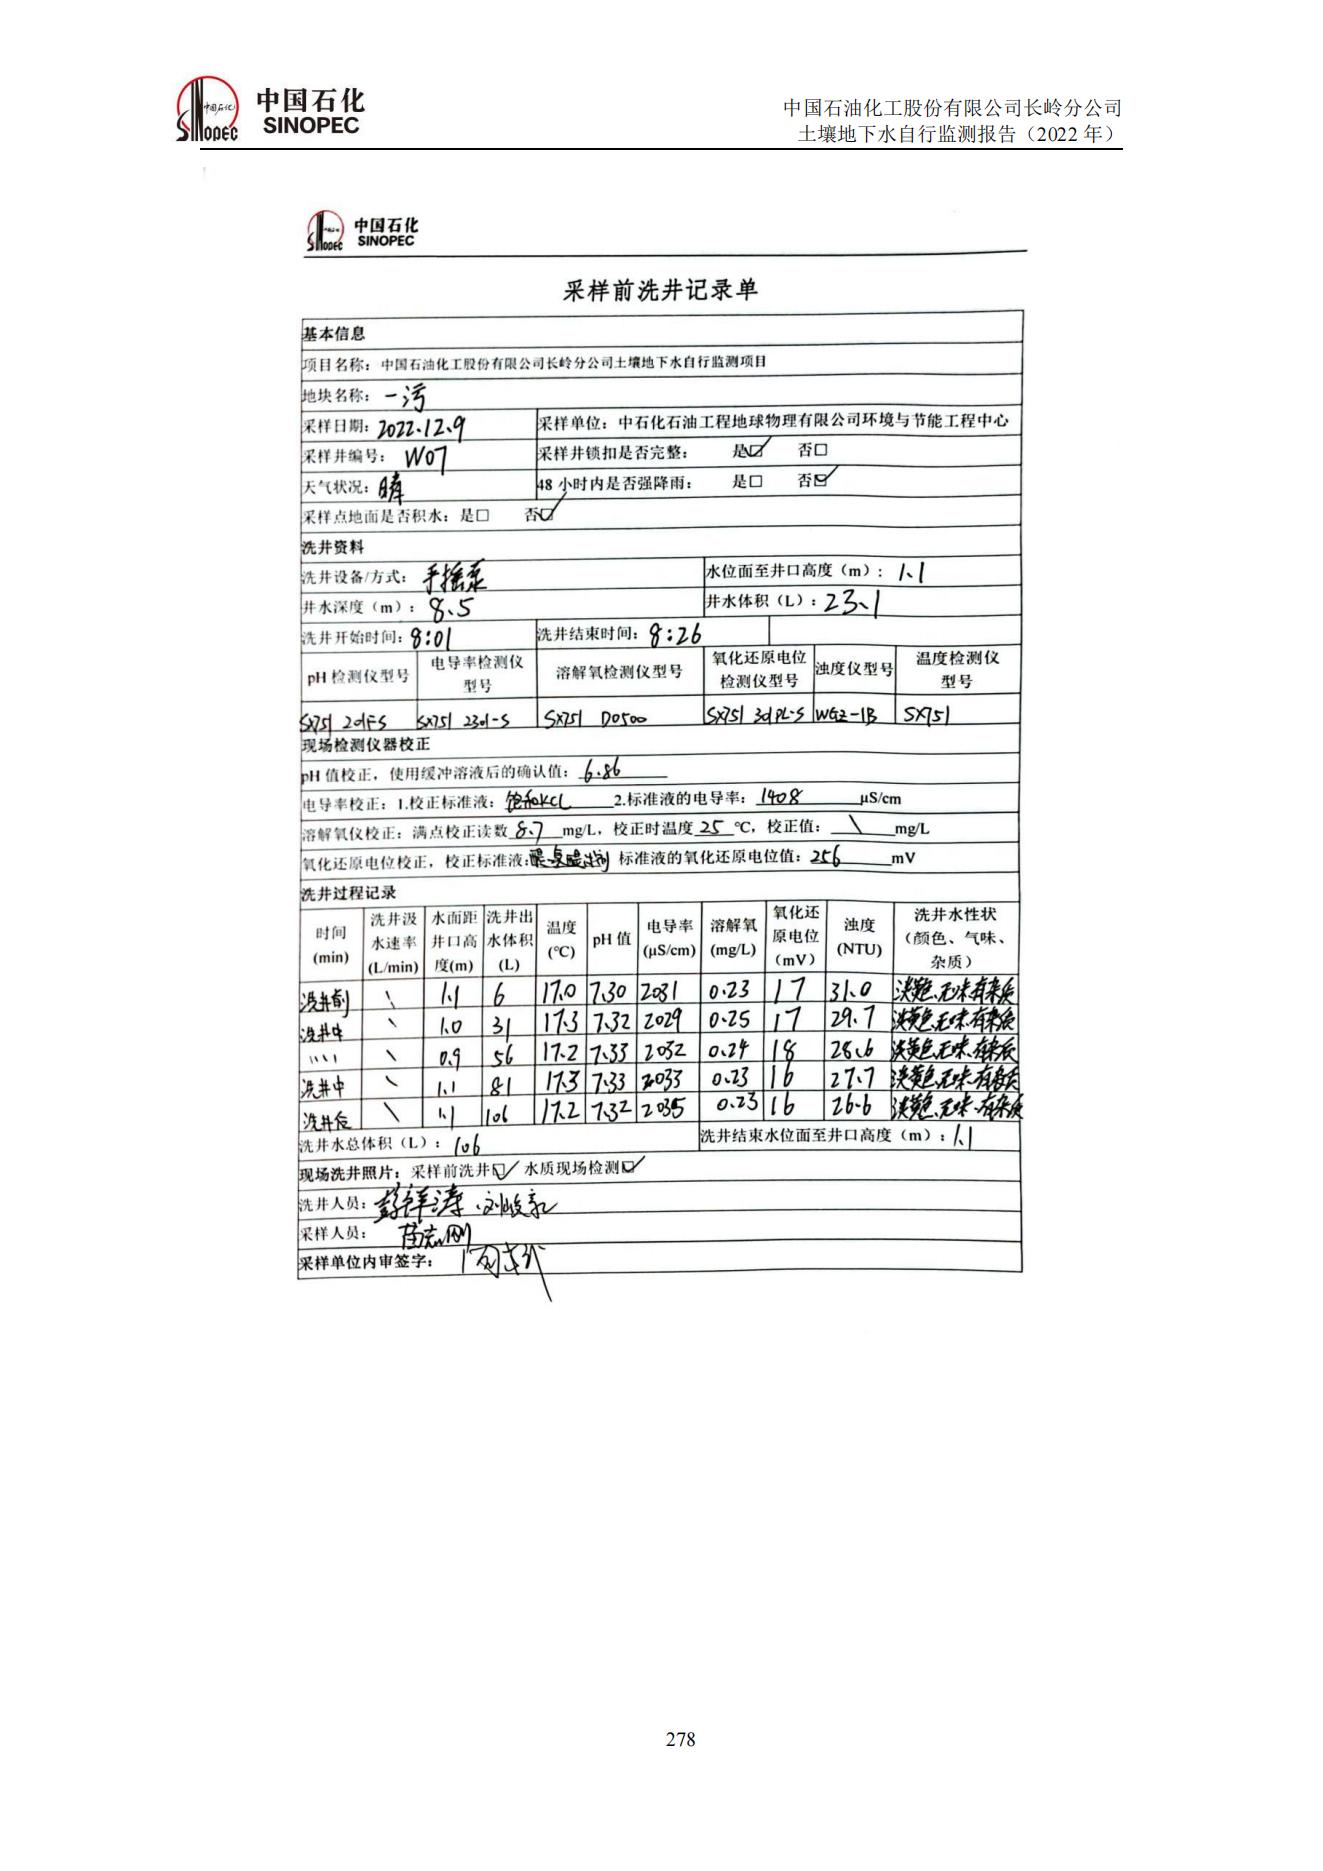 中国石化
SINOPEC
中国石油化工股份有限公司长岭分公司
土壤地下水自行监测报告（2022 年）
中国石化
SINOPEC
采样前洗井记录单
基本信息
项目名称：中国石油化工股份有限公司长岭分公司土壤地下水自行监测项目
地块名称：一污
采样日期：2022.12.9 采样单位：中石化石油工程地球物理有限公司环境与节能工程中心
采样井编号：W07 采样井锁扣是否完整： 是☑ 否□
天气状况：晴 48 小时内是否强降雨： 是□ 否☑
采样点地面是否积水：是□ 否☑
洗井资料
洗井设备/方式：手摇泵 水位面至井口高度（m）：1.1
井水深度（m）：8.5 井水体积（L）：23.1
洗井开始时间：8:01 洗井结束时间：8:26
pH 检测仪型号 电导率检测仪型号 溶解氧检测仪型号 氧化还原电位检测仪型号 浊度仪型号 温度检测仪型号
SX751 201FS SX751 2301-S SX751 DO500 SX751 301PL-S WGZ-1B SX751
现场检测仪器校正
pH 值校正，使用缓冲溶液后的确认值：6.86
电导率校正：1.校正标准液：饱和KCL 2.标准液的电导率：1408 μS/cm
溶解氧仪校正：满点校正读数 8.7 mg/L，校正时温度 25 ℃，校正值：\ mg/L
氧化还原电位校正，校正标准液： 标准液的氧化还原电位值：256 mV
洗井过程记录
时间(min) 洗井汲水速率(L/min) 水面距井口高度(m) 洗井出水体积(L) 温度(℃) pH 值 电导率(μS/cm) 溶解氧(mg/L) 氧化还原电位（mV） 浊度(NTU) 洗井水性状（颜色、气味、杂质）
洗井前 \ 1.1 6 17.0 7.30 2031 0.23 17 31.0 淡黄色.无味.有杂质
洗井中 \ 1.0 31 17.3 7.32 2029 0.25 17 29.7 淡黄色.无味.有杂质
\\\\ \ 0.9 56 17.2 7.33 2032 0.24 18 28.6 淡黄色.无味.有杂质
洗井中 \ 1.1 81 17.3 7.33 2033 0.23 16 27.7 淡黄色.无味.有杂质
洗井后 \ 1.1 106 17.2 7.32 2035 0.23 16 26.6 淡黄色.无味.有杂质
洗井水总体积（L）：106 洗井结束水位面至井口高度（m）：1.1
现场洗井照片：采样前洗井☑ 水质现场检测☑
洗井人员：
采样人员：
采样单位内审签字：
278